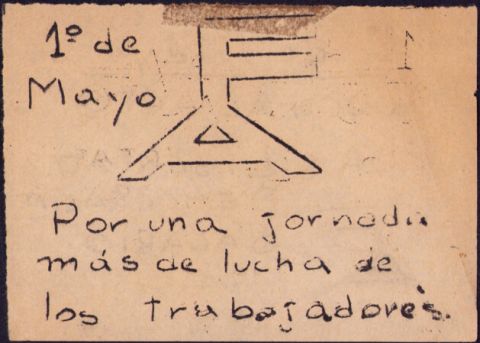 1º de
Mayo
Por una jornada
más de lucha de
los trabajadores.